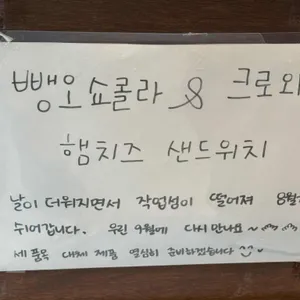 뺑오쇼콜라 & 크로와
햄치즈 샌드위치
날이 더워지면서 작업성이 떨어져 8월
쉬어갑니다. 우린 9월에 다시 만나요~
세 품목 대체 제품 열심히 준비하겠습니다